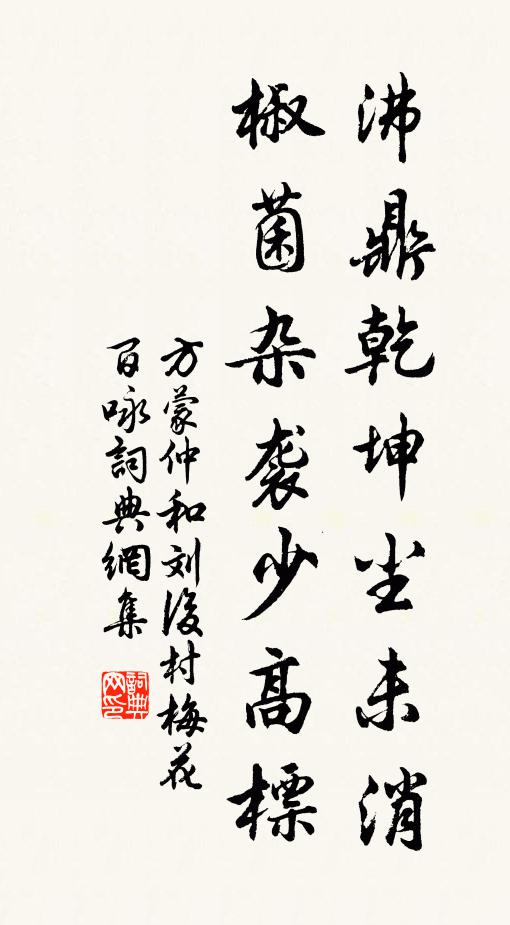 沸鼎乾坤尘未消
椒菌杂袭少高標
方蒙仲和刘後村梅花
百咏詞典網集
詞典网印